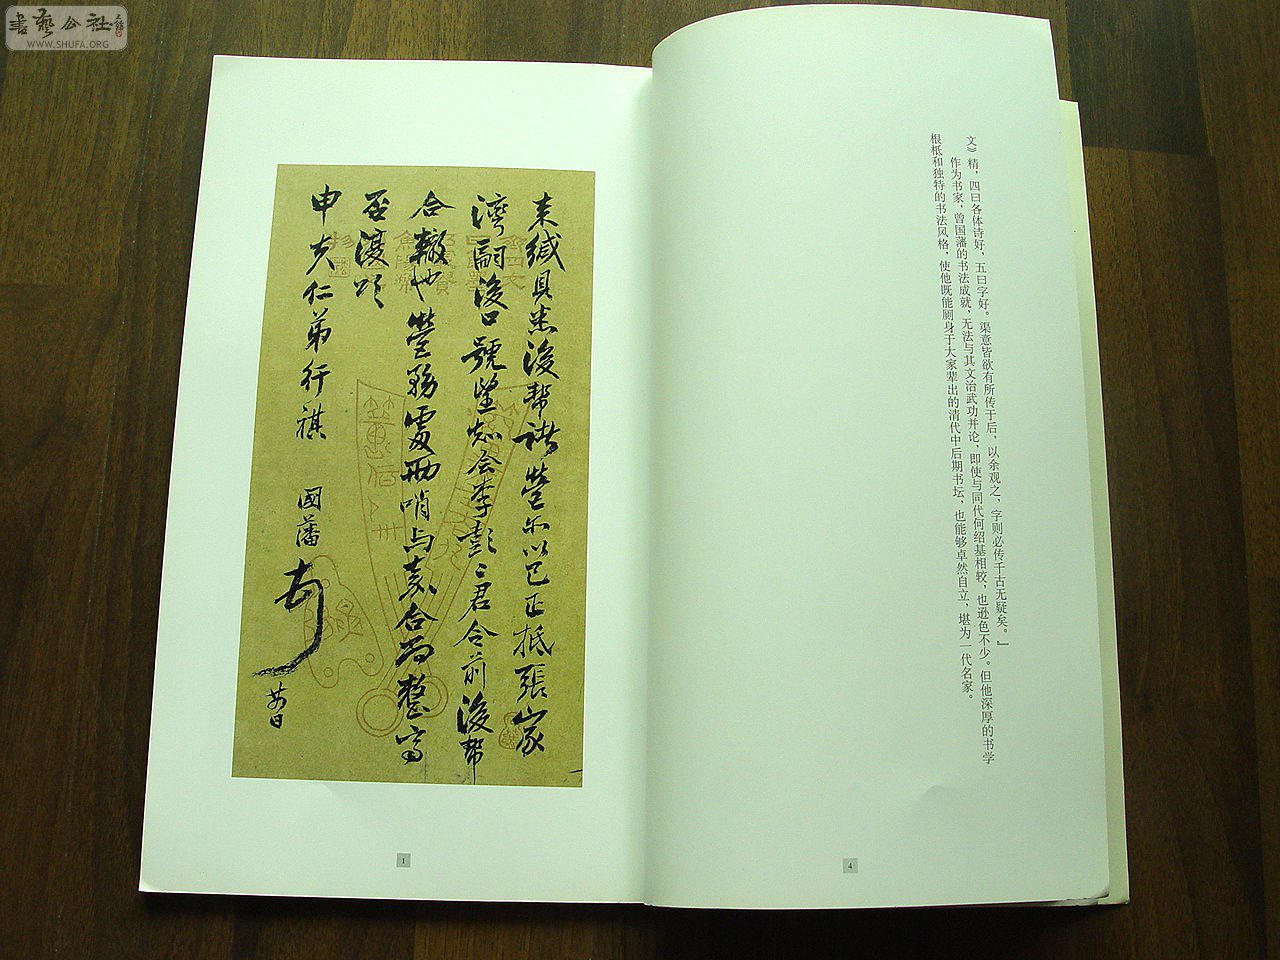 书艺公社
WWW.SHUFA.ORG
文》精，四曰各体诗好，五曰字好。渠意皆欲有所传于后，以余观之，字则必传千古无疑矣。』
作为书家，曾国藩的书法成就，无法与其文治武功并论，即使与同代何绍基相较，也逊色不少。但他深厚的书学
根柢和独特的书法风格，使他既能厕身于大家辈出的清代中后期书坛，也能够卓然自立，堪为一代名家。
4
来缄具悉後帮諸營亦以巳正抵張家
灣嗣後口號望知会李彭二君令前後帮
合轍也營務處兩哨与 合而整
至復頌
申夫仁弟行祺 國藩
日
1